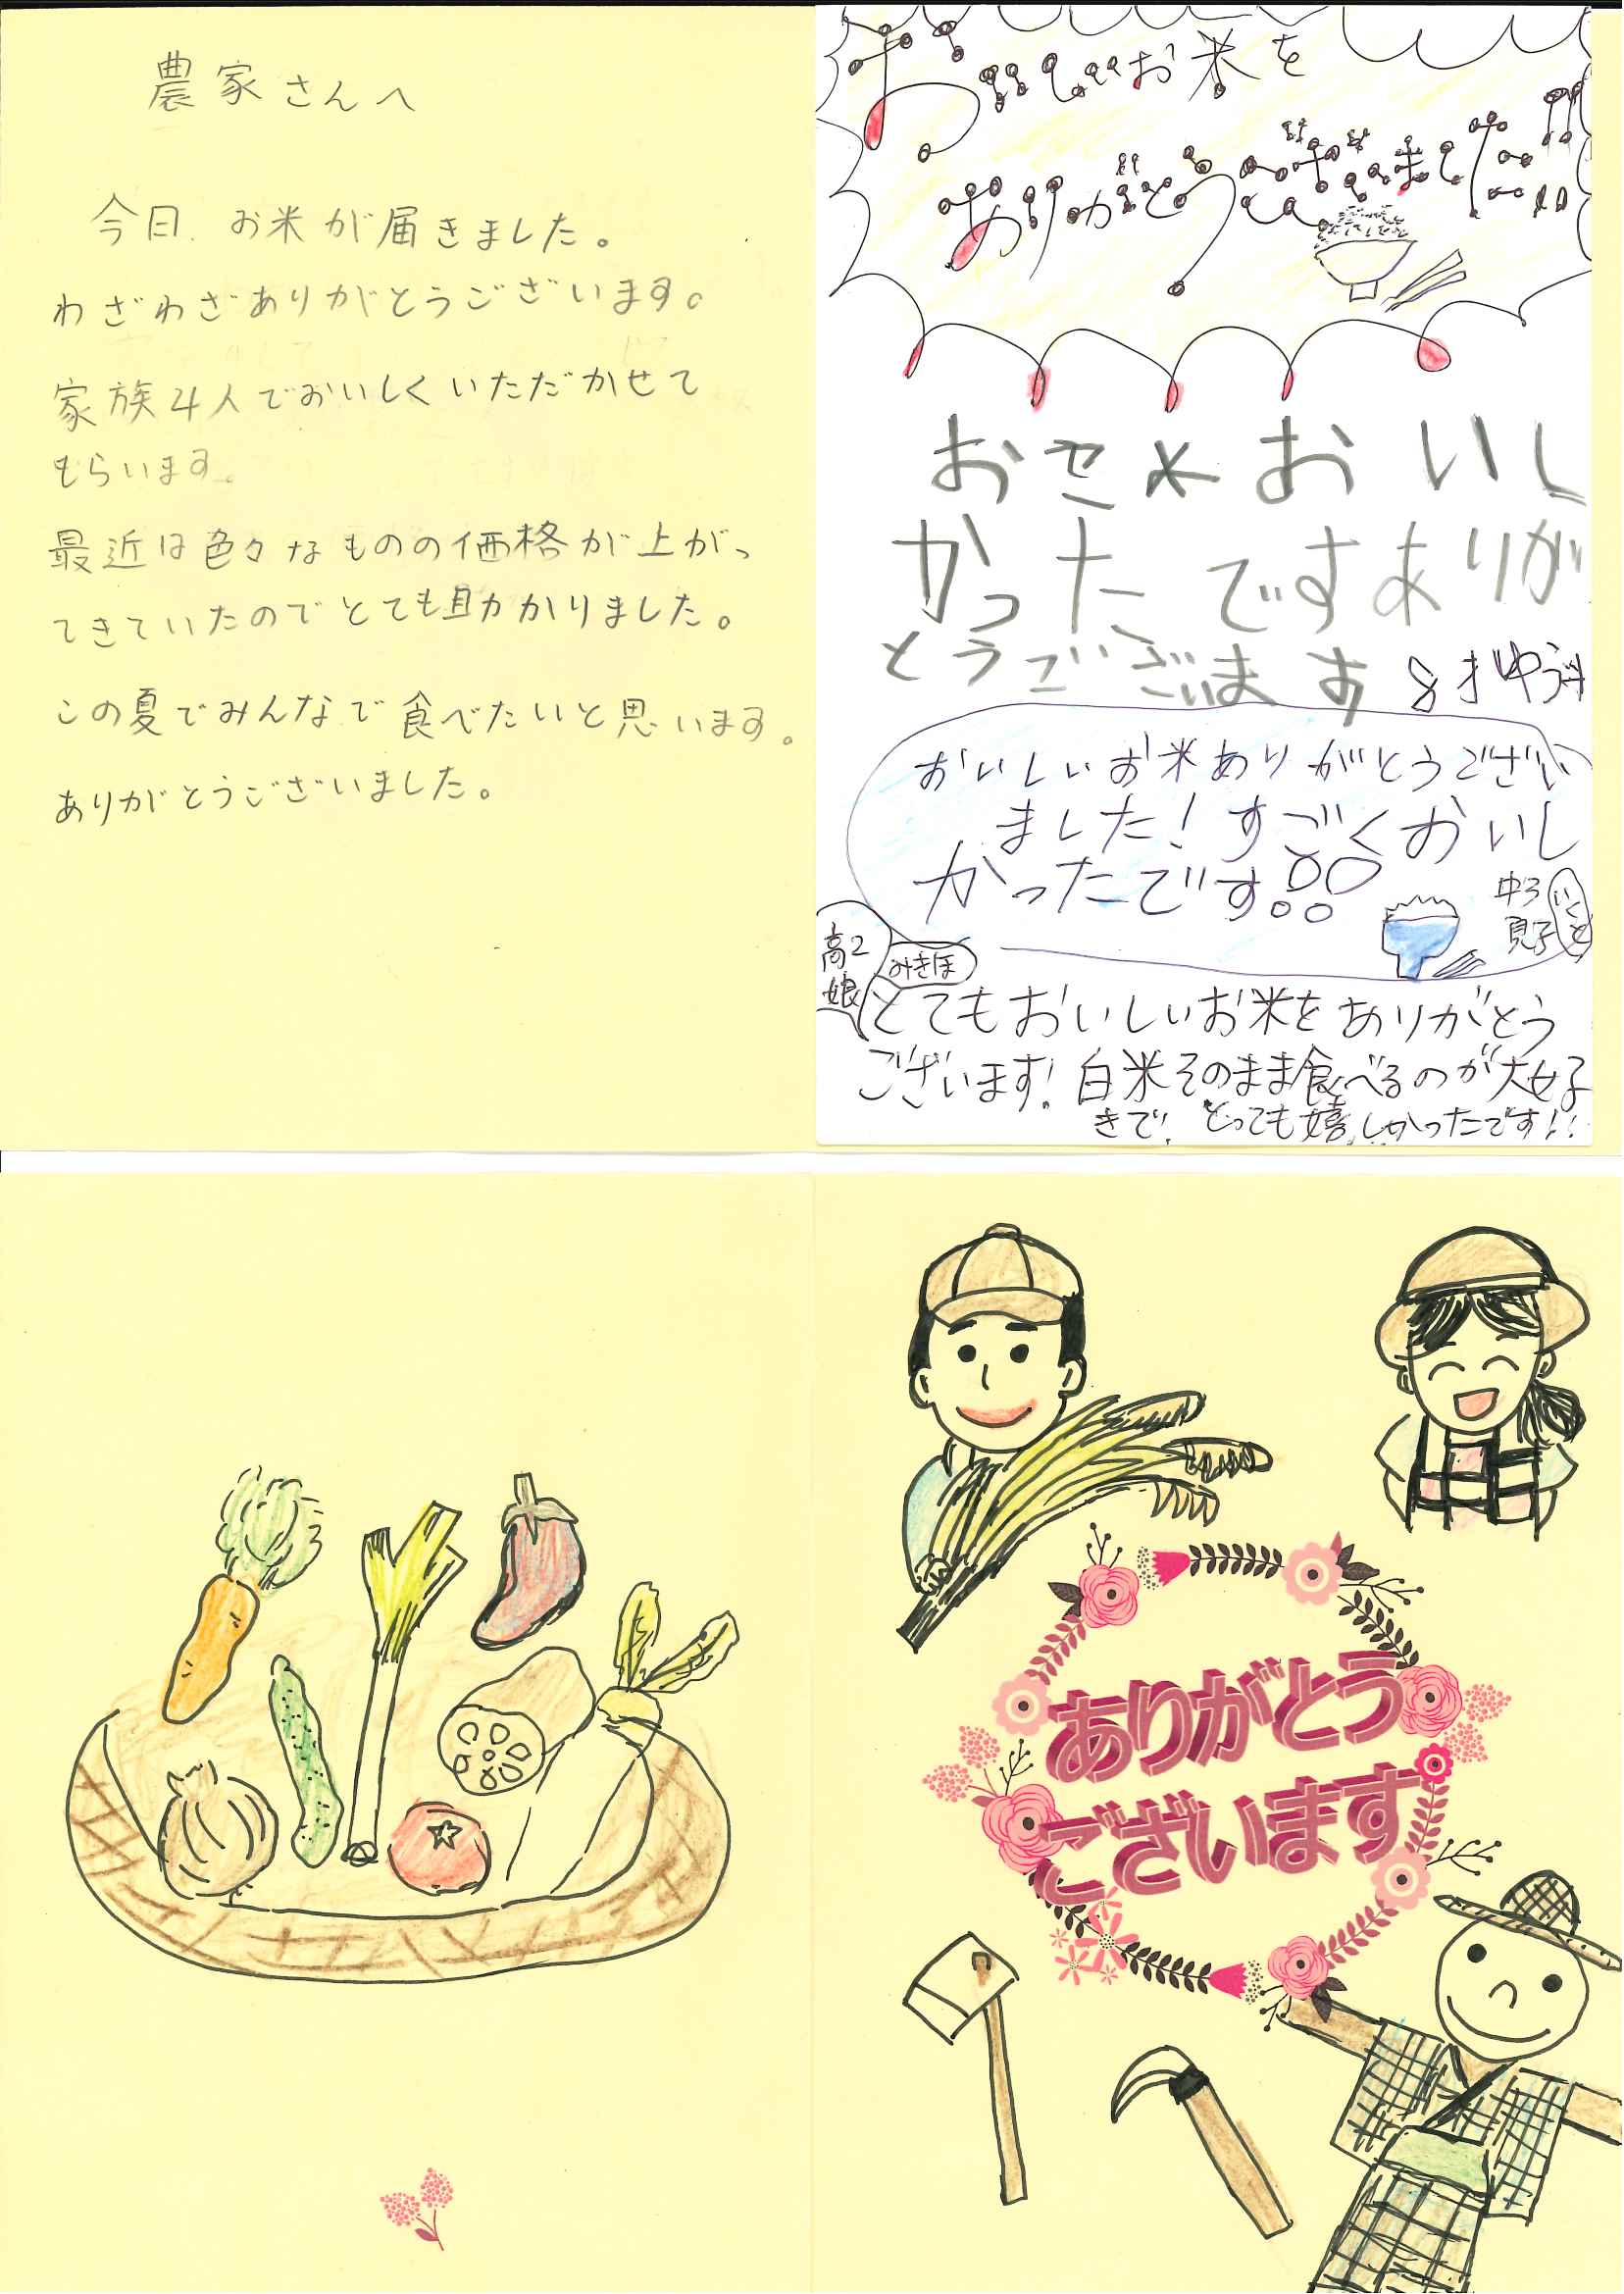 農家さんへ
今日、お米が届きました。
わざわざありがとうございます。
家族4人でおいしくいただかせて
もらいます。
最近は色々なものの価格が上がっ
てきていたのでとても助かりました。
この夏でみんなで食べたいと思います。
ありがとうございました。
おいしいお米を
ありがとうございました!!
おせ米おいし
かったですありが
とうございます
8才ゆうり
おいしいお米ありがとうござい
ました！すごくおいし
かったです!!
中3
いとこ
高2
娘
みきほ
とてもおいしいお米をありがとう
ございます！白米そのまま食べるのが大好
きで、とっても嬉しかったです！！
ありがとう
ございます